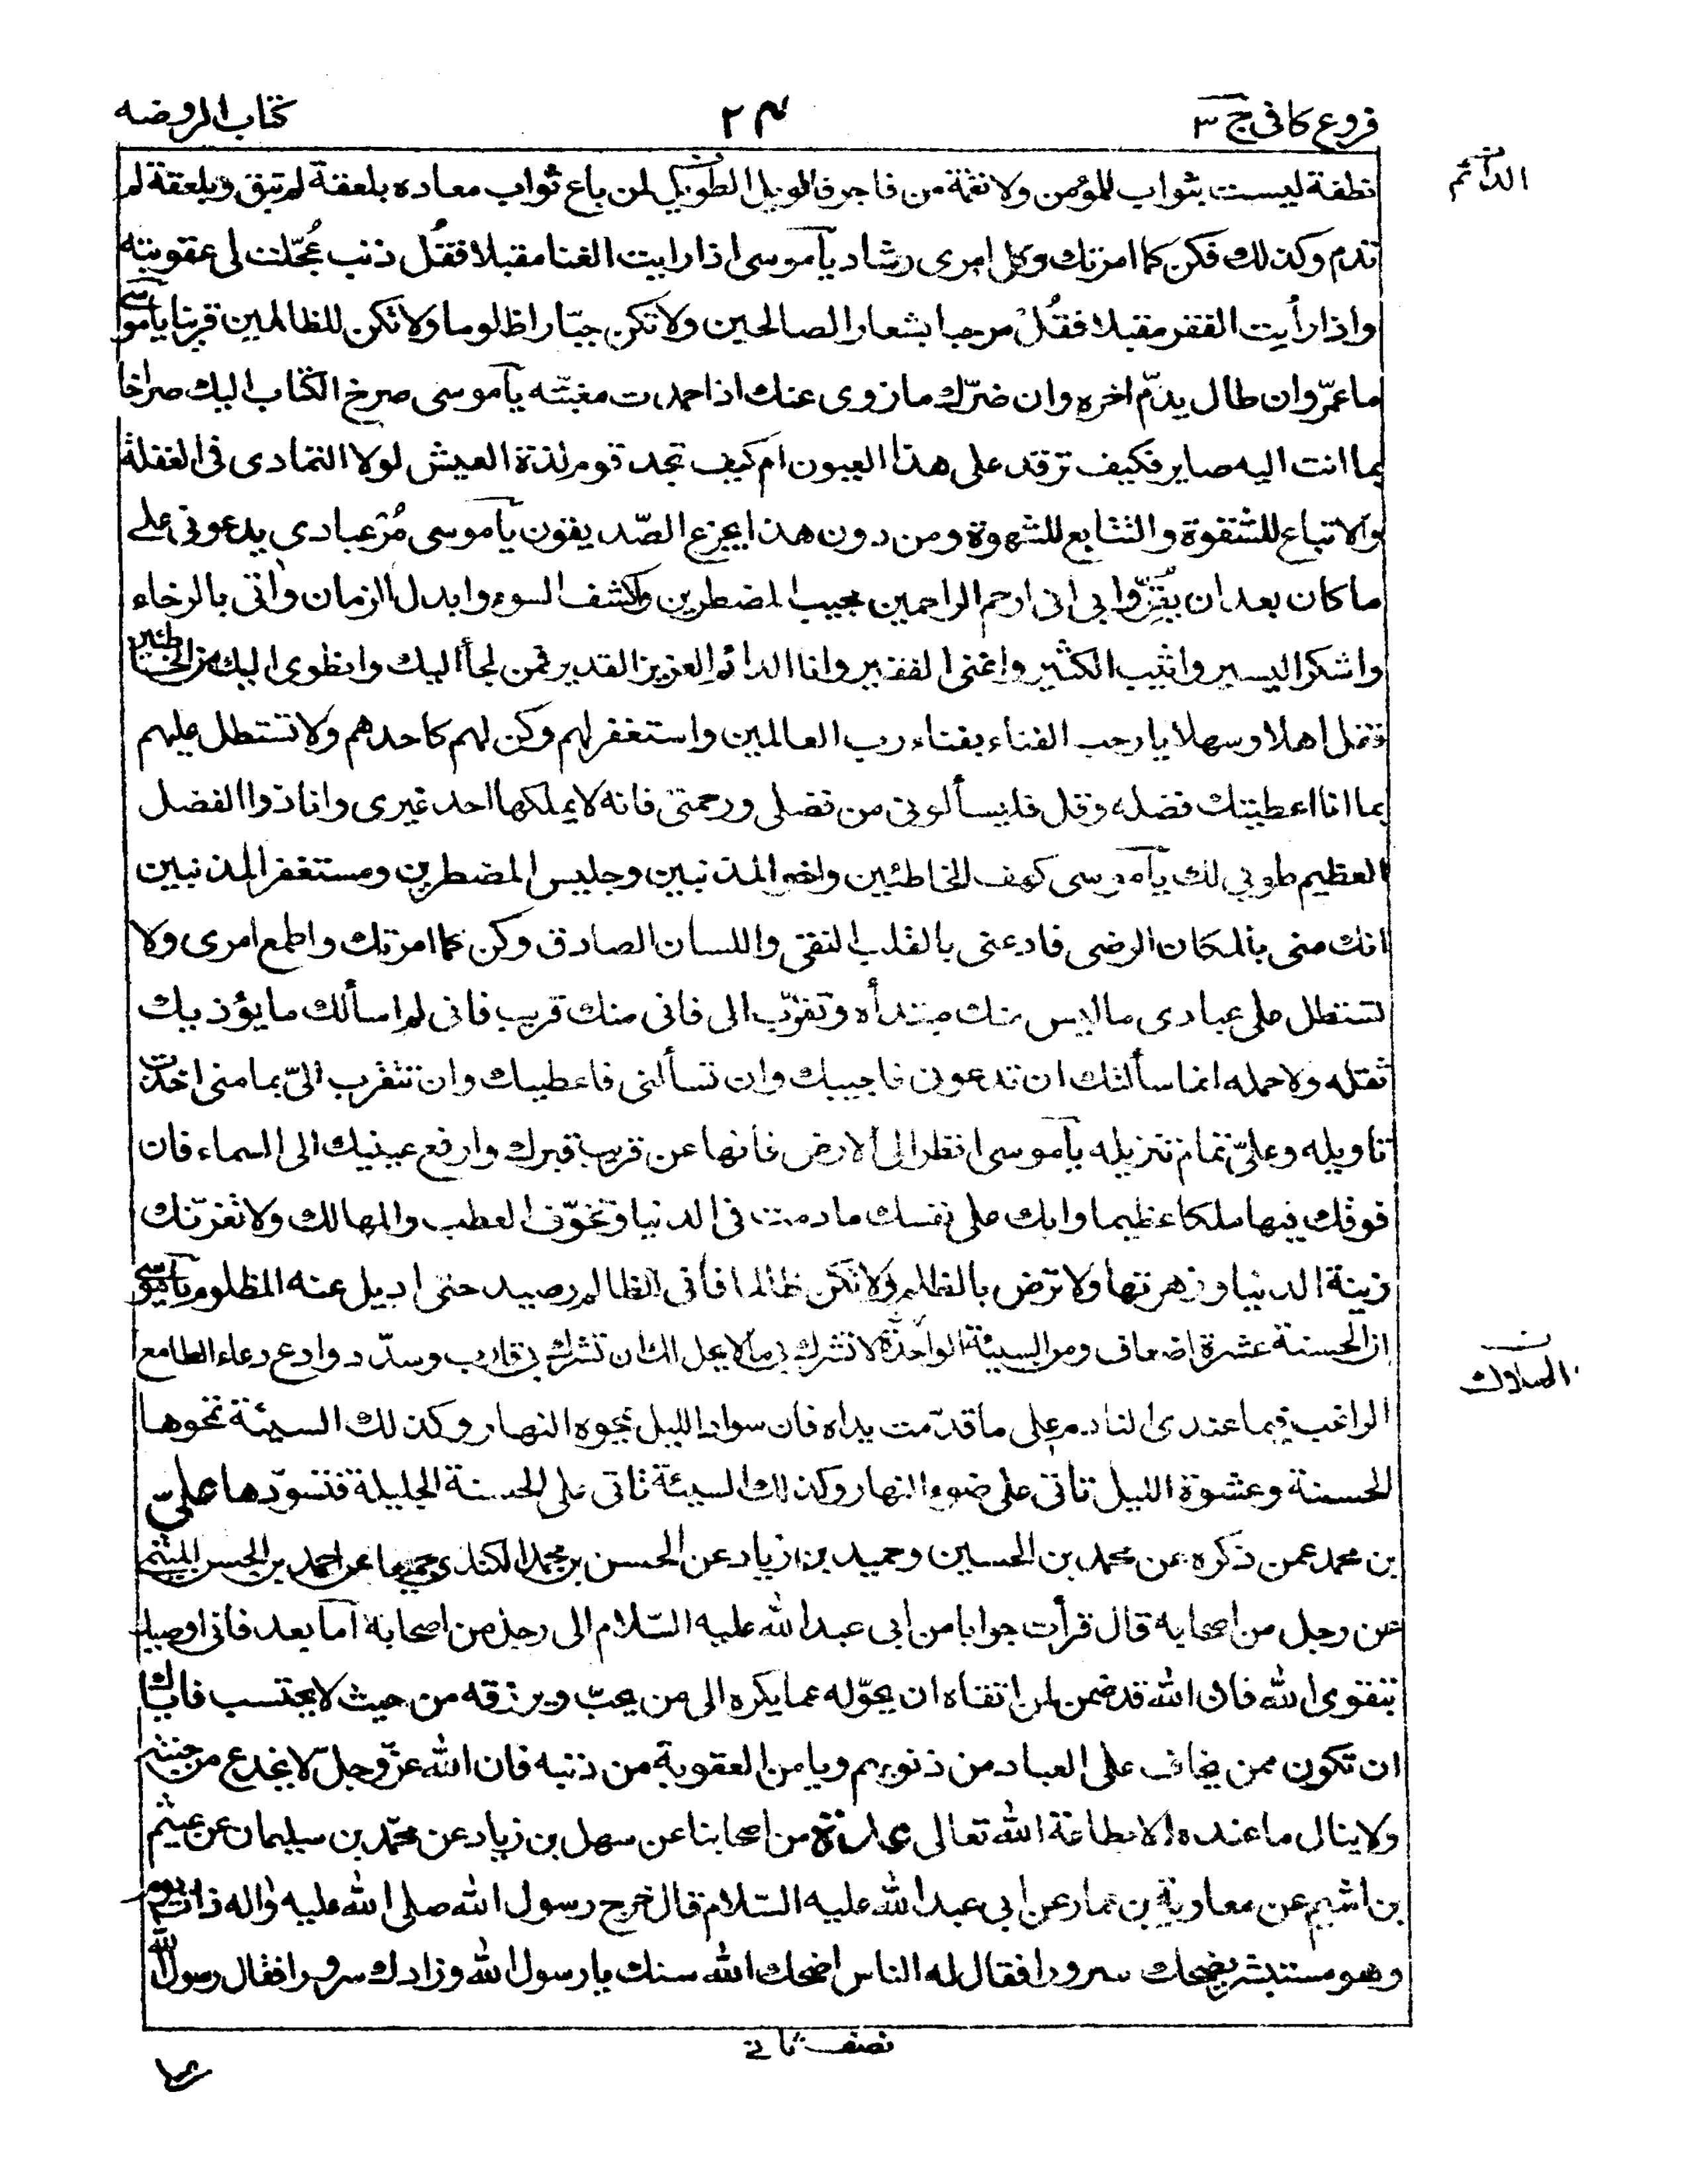 فروع كافى ج ٣
٢٤
كتاب الروضه
نطفة ليست بثواب للمؤمن ولا نقمة من فاجر فالويل الطويل لمن باع ثواب معاده بلعقة لم تبق وبلعقة لم
الدائم
تدم وكذلك فكن كما امرتك وكل امرى رشاد يا موسى اذا رايت الغنا مقبلا فقل ذنب عُجّلت لى عقوبته
واذا رأيت الفقر مقبلا فقُلْ مرحبا بشعار الصالحين ولا تكن جبّارا ظلوما ولا تكن للظالمين قرينا يا موسى
ما عمّر وان طال يذمّ اخره وان ضرّك ما زوى عنك اذا حمدت مغبّته يا موسى صرخ الكتاب اليك صراخا
بما انت اليه صاير فكيف ترقد على هذا العيون ام كيف تجد قوم لذة العيش لولا التمادى فى الغفلة
والاتباع للشقوة والتتابع للشهوة ومن دون هذا يجزع الصّديقون يا موسى مُرْ عبادى يدعونى على
ما كان بعد ان يقرّوا بى انى ارحم الراحمين مجيب المضطرين واكشف السوء وابدل الزمان واتى بالرخاء
واشكر اليسير واثيب الكثير واغنى الفقير وانا الدائم العزيز القدير فمن لجأ اليك وانطوى اليك من الخاطئين
فقل اهلا وسهلا يا رحب الفناء بفناء رب العالمين واستغفر لهم وكن لهم كاحدهم ولا تستطل عليهم
بما انا اعطيتك فضله وقل فليسألونى من فضلى ورحمتى فانه لا يملكها احد غيرى وانا ذوا الفضل
العظيم طوبى لك يا موسى كهف الخاطئين واخو المذنبين وجليس المضطرين ومستغفر المذنبين
انك منى بالمكان الرضى فادعنى بالقلب النقى واللسان الصادق وكن كما امرتك واطع امرى ولا
تستطل على عبادى ما ليس منك مبتدأه وتقرّب الى فانى منك قريب فانى لم اسألك ما يؤذيك
ثقله ولا حمله انما سألتك ان تدعون فاجيبك وان تسألنى فاعطيك وان تتقرب الىّ بما منى اخذت
تاويله وعلىّ تمام تنزيله يا موسى انظر الى الارض فانها عن قريب قبرك وارفع عينيك الى السماء فان
فوقك فيها ملكا عظيما وابك على نفسك ما دمت فى الدنيا وتخوّف العطب والمهالك ولا تغرّنك
زينة الدنيا وزهرتها ولا ترض بالظلم ولا تكن ظالما فانى للظالم رصيد حتى اديل عنه المظلوم يا موسى
ان الحسنة عشرة اضعاف ومن السيئة الواحدة لا تشرك بى ما لا يحل لك ان تشرك بى قارب وسدّد وادع دعاء الطامع
الهلاك
الراغب فيما عندى النادم على ما قدّمت يداه فان سواد الليل يمحوه النهار وكذلك السيئة تمحوها
الحسنة وعشوة الليل تاتى على ضوء النهار وكذلك السيئة تاتى على الحسنة الجليلة فتسوّدها علىّ
بن محمد عمن ذكره عن محمد بن الحسين وحميد بن زياد عن الحسن بن محمد الكندى جميعا عن احمد بن الحسن الميثمى
عن رجل من اصحابه قال قرأت جوابا من ابى عبد الله عليه السّلام الى رجل من اصحابه اما بعد فانى اوصيك
بتقوى الله فان الله قد ضمن لمن اتقاه ان يحوّله عما يكره الى من يحبّ ويرزقه من حيث لا يحتسب فاياك
ان تكون ممن يخاف على العباد من ذنوبهم ويامن العقوبة من ذنبه فان الله عزّ وجلّ لا يخدع من جنته
ولا ينال ما عنده الا بطاعة الله تعالى عدة من اصحابنا عن سهل بن زياد عن محمّد بن سليمان عن عيثم
بن اشيم عن معاوية بن عمار عن ابى عبد الله عليه السّلام قال خرج رسول الله صلى الله عليه واله ذات يوم
وهو مستبشر يضحك سرورا فقال له الناس اضحك الله سنك يا رسول الله وزادك سرورا فقال رسول الله